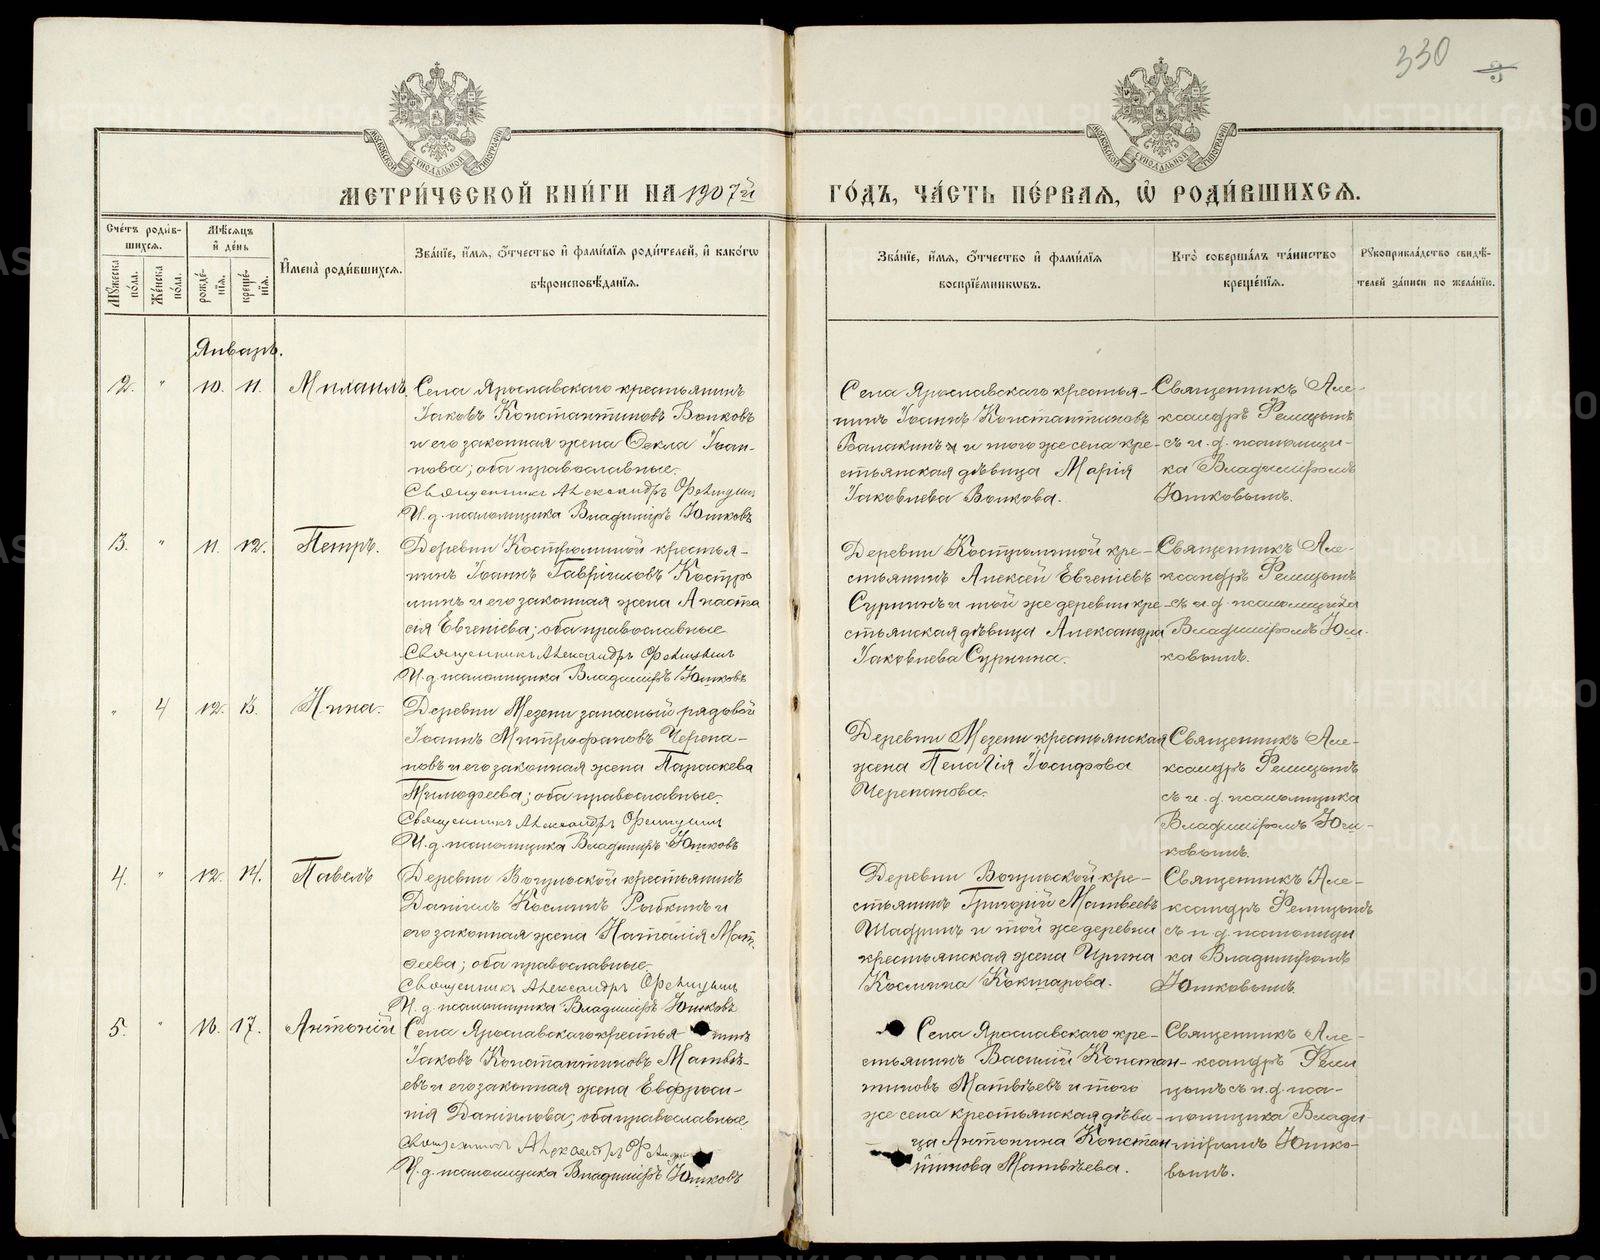 330
3
МОСКОВСКОЙ СѴНОДАЛЬНОЙ ТИПОГРАФІИ
МОСКОВСКОЙ СѴНОДАЛЬНОЙ ТИПОГРАФІИ
МЕТРИ́ЧЕСКОЙ КНИ́ГИ НА 1907й
ГО́ДЪ, ЧА́СТЬ ПЕ́РВАЯ, Ѡ҆ РОДИ́ВШИХСЯ.
Сче́тъ роди́в-
шихся.
Мѣ́сяцъ
и҆ де́нь
Мꙋ́жеска по́ла.
Же́нска по́ла.
рожде́-нїя.
креще́-нїя.
И҆мена̀ роди́вшихся.
Зва́нїе, и҆́мя, ѻ҆́тчество и҆ фами́лїя роди́телей, и҆ како́гѡ
вѣроисповѣ́данїя.
Зва́нїе, и҆́мя, ѻ҆́тчество и҆ фами́лїя
воспрїе́мникѡвъ.
Кто̀ соверша́лъ та́инство
креще́нїя.
Рꙋкоприкла́дство свидѣ́-
телей за́писи по жела́нїю.
Январь.
2. " 10. 11. Михаилъ
Села Ярославскаго крестьянинъ
Іаковъ Константиновъ Волковъ
и его законная жена Ѳекла Іоан-
нова; оба православные.
Священникъ Александръ Фелицынъ
И.д. псаломщика Владиміръ Юшковъ
Села Ярославскаго крестья-
нинъ Іоаннъ Константиновъ
Балакинъ и того же села кре-
стьянская дѣвица Марія
Іаковлева Волкова.
Священникъ Але-
ксандръ Фелицынъ
съ и.д. псаломщи-
ка Владиміромъ
Юшковымъ.
3. " 11. 12. Петръ.
Деревни Костроминой крестья-
нинъ Іоаннъ Гавріиловъ Костро
минъ и его законная жена Анаста
сія Евгеніева; оба православные
Священникъ Александръ Фелицынъ
И.д. псаломщика Владиміръ Юшковъ
Деревни Костроминой кре-
стьянинъ Алексѣй Евгеніевъ
Сурнинъ и той же деревни кре-
стьянская дѣвица Александра
Іаковлева Сурнина.
Священникъ Але-
ксандръ Фелицынъ
съ и.д. псаломщика
Владиміромъ Юш-
ковымъ.
" 4 12. 13. Нина.
Деревни Мезени запасный рядовой
Іоаннъ Митрофановъ Черепа-
новъ и его законная жена Параскева
Тимоѳеева; оба православные.
Священникъ Александръ Фелицынъ
И.д. псаломщика Владиміръ Юшковъ
Деревни Мезени крестьянская
жена Пелагія Іосифова
Черепанова.
Священникъ Але-
ксандръ Фелицынъ
съ и.д. псаломщика
Владиміромъ Юш-
ковымъ.
4. " 12. 14. Павелъ
Деревни Вогульской крестьянинъ
Даніилъ Косминъ Рыбкинъ и
его законная жена Наталія Мат-
ѳеева; оба православные
Священникъ Александръ Фелицынъ
И.д. псаломщика Владиміръ Юшковъ
Деревни Вогульской кре-
стьянинъ Григорій Матвеевъ
Шадринъ и той же деревни
крестьянская жена Ирина
Космина Кокшарова.
Священникъ Але-
ксандръ Фелицынъ
съ и.д. псаломщи
ка Владиміромъ
Юшковымъ.
5. " 16. 17. Антоній
Села Ярославскаго крестья нинъ
Іаковъ Константиновъ Матвѣ-
евъ и его законная жена Евфроси-
нія Даніилова; оба православные
Священникъ Александръ Фелицынъ
И.д. псаломщика Владиміръ Юшковъ
Села Ярославскаго кре-
стьянинъ Василій Констан-
тиновъ Матвѣевъ и того
же села крестьянская дѣви-
ца Антонина Констан
тинова Матвѣева.
Священникъ Але-
ксандръ Фели
цынъ съ и.д. пса-
ломщика Влади
міромъ Юшко-
вымъ.
METRIKI.GASO-URAL.RU